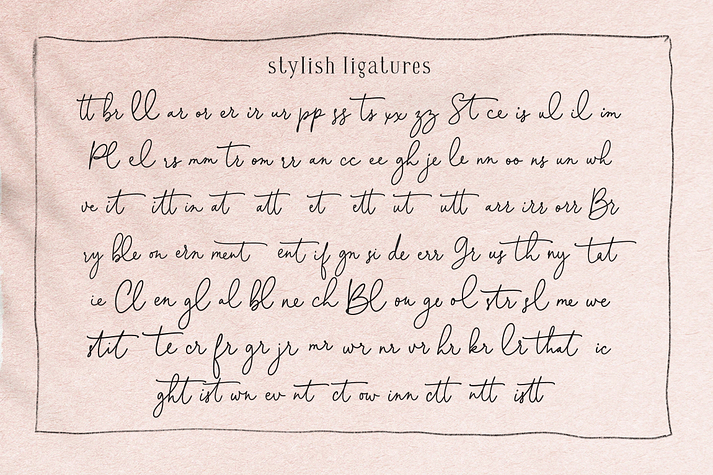 stylish ligatures
tt br ll ar or er ir ur pp ss ts xx zz St ce is ul il im
Pl el rs mm tr om rr an cc ee gh je le nn oo ns un wh
ve it itt in at att et ett ut utt arr irr orr Br
ry ble on ern ment ent if gn si de err Gr us th ny tat
ie Cl en gl al bl ne ch Bl ou ge ol str sl me we
stit te cr fr gr jr mr wr nr vr hr kr lr that ic
ght ist wn ev nt ct ow inn ctt ntt istt